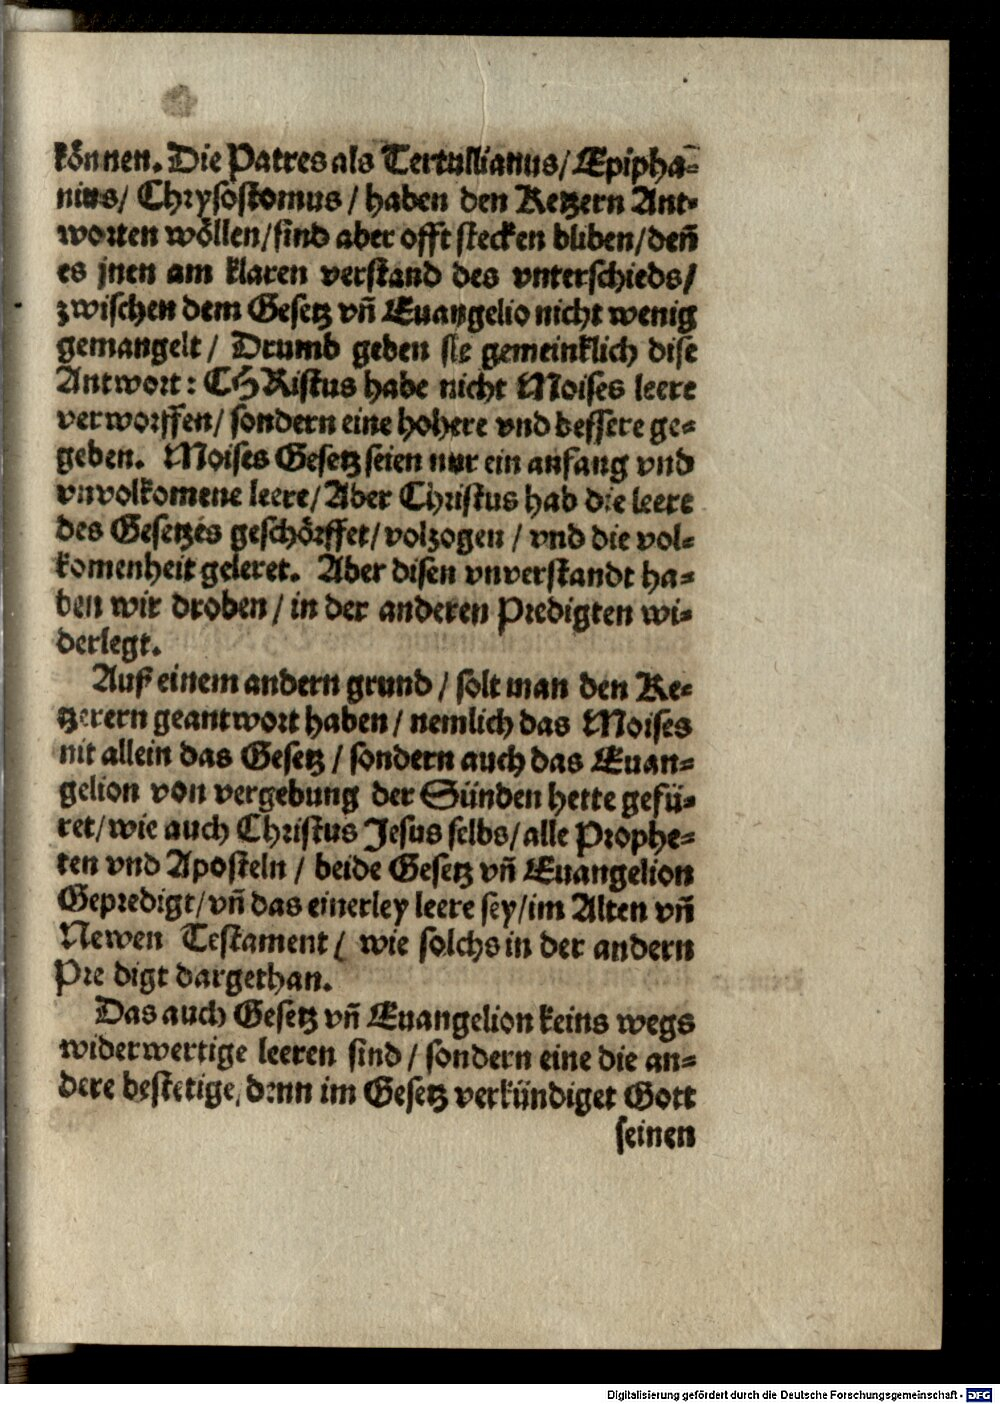 können. Die Patres als Tertullianus/ Epipha⸗
nius/ Chrysostomus / haben den Ketzern Ant⸗
worten wöllen/ sind aber offt stecken bliben/ deñ
es jnen am klaren verstand des vnterschieds/
zwischen dem Gesetz vñ Euangelio nicht wenig
gemangelt / Drumb geben sie gemeinklich dise
Antwort: CHRistus habe nicht Moises leere
verworffen/ sondern eine hohere vnd bessere ge⸗
geben. Moises Gesetz seien nur ein anfang vnd
vnvolkomene leere/ Aber Christus hab die leere
des Gesetzes geschörffet/ volzogen / vnd die vol⸗
komenheit geleret. Aber disen vnverstandt ha⸗
ben wir droben / in der anderen Predigten wi⸗
derlegt.
Auß einem andern grund / solt man den Ke⸗
tzerern geantwort haben / nemlich das Moises
nit allein das Gesetz / sondern auch das Euan⸗
gelion von vergebung der Sünden hette gefü⸗
ret/ wie auch Christus Jesus selbs/ alle Prophe⸗
ten vnd Aposteln / beide Gesetz vñ Euangelion
Gepredigt/ vñ das einerley leere sey/ im Alten vñ
Newen Testament / wie solchs in der andern
Pre digt dargethan.
Das auch Gesetz vñ Euangelion keins wegs
widerwertige leeren sind / sondern eine die an⸗
dere bestetige, denn im Gesetz verkündiget Gott
seinen
Digitalisierung gefördert durch die Deutsche Forschungsgemeinschaft - DFG